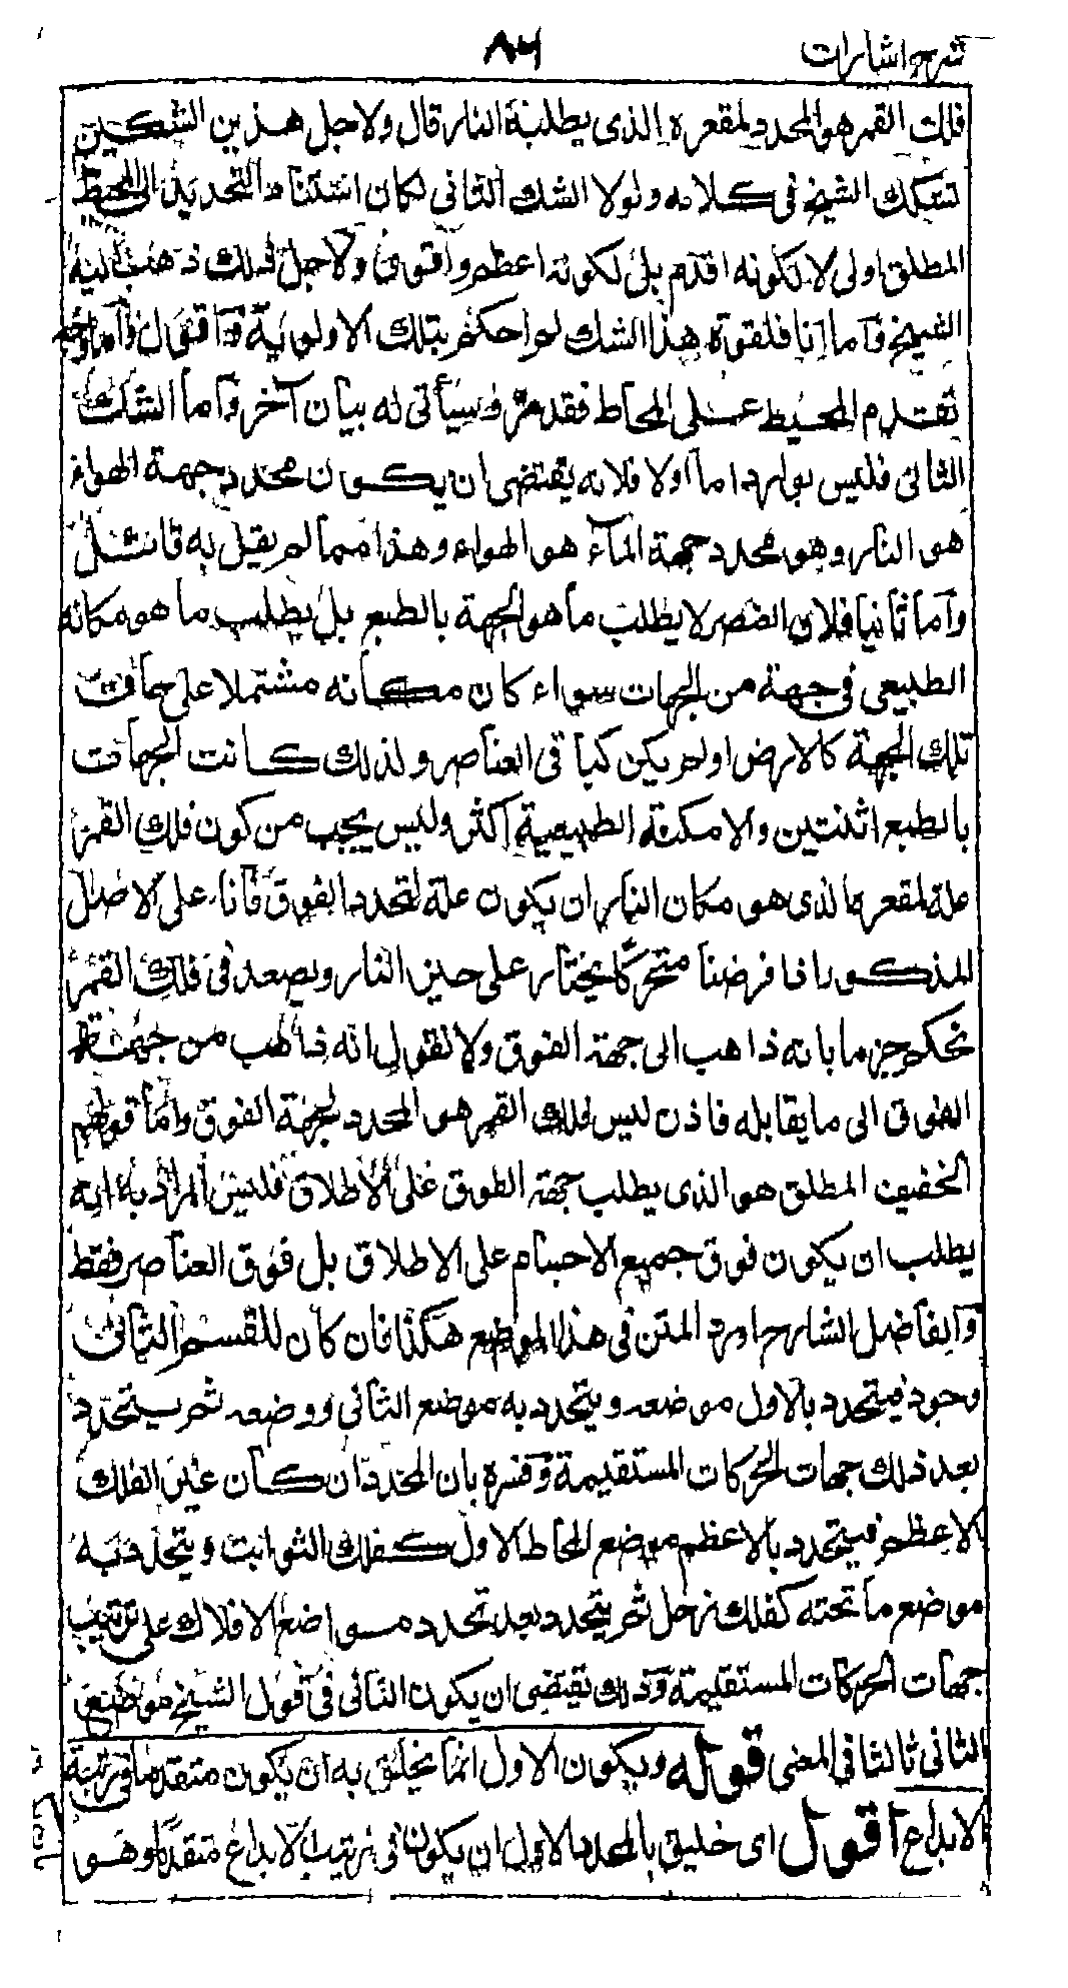 شرح اشارات
٨٦
فلك القمر هو المحدد لمقعره الذى يطلبة النار قال ولاجل هذين الشكين
تشكك الشيخ فى كلامه ولولا الشك الثانى لكان استناد التحديد الى المحيط
المطلق اولى لا لكونه اقدم بل لكونه اعظم واقوى ولاجل ذلك ذهب اليه
الشيخ وآما انا فلقوة هذا الشك لم احكم بتلك الاولوية وآقول وآما وجه
تقدم المحيط على المحاط فقد مرّ وسيأتى له بيان آخر وآما الشك
الثانى فليس بوارد اما اولا فلانه يقتضى ان يكون محدد جهة الهواء
هو النار وهو محدد جهة المآء هو الهواء وهذا مما لم يقل به قائل
وآما ثانيا فلان العنصر لا يطلب ما هو الجهة بالطبع بل يطلب ما هو مكانه
الطبيعى فى جهة من الجهات سواء كان مكانه مشتملا على حاق
تلك الجهة كالارض اولم يكن كباقى العناصر ولذلك كانت الجهات
بالطبع اثنتين والامكنة الطبيعية اكثر وليس يجب من كون فلك القمر
علة لمقعره الذى هو مكان النار ان يكون علة لتحدد الفوق فانا على الاصل
المذكور اذا فرضنا متحركا يجتاز على حيز النار ويصعد فى فلك القمر
نحكم جزما بانه ذاهب الى جهة الفوق ولا نقول انه ذاهب من جهة
الفوق الى ما يقابله فاذن ليس فلك القمر هو المحدد لجهة الفوق واما قولهم
الخفيف المطلق هو الذى يطلب جهة الفوق على الاطلاق فليس المراد به انه
يطلب ان يكون فوق جميع الاجسام على الاطلاق بل فوق العناصر فقط
وآلفاضل الشارح اورد المتن فى هذا الموضع هكذا فان كان للقسم الثانى
وجود فيتحدد بالاول موضعه ويتحدد به موضع الثانى ووضعه ثم يتحدد
بعد ذلك جهات الحركات المستقيمة وفسره بان المحدد ان كان غير الفلك
الاعظم فيتحدد بالاعظم موضع المحاط الاول كفلك الثوابت ويتحدد به
موضع ما تحته كفلك زحل ثم يتحدد بعد تحدد مواضع الافلاك على ترتيب
جهات الحركات المستقيمة وذلك يقتضى ان يكون الثانى فى قول الشيخ موضع
الثانى ثالثا فى المعنى قوله ويكون الاول انما يخليق به ان يكون متقدما فى رتبة
الابداع اقول اى خليق بالمحدد الاول ان يكون فى ترتيب الابداع متقدما وهو